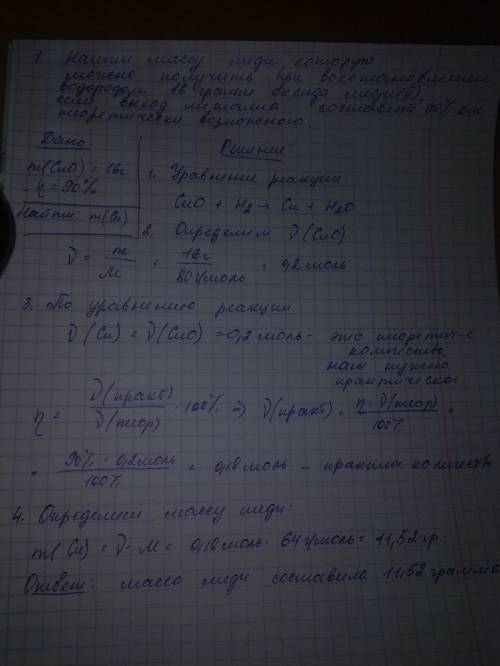 1. Найти массу меди которую
можно получить при восстановлении
водородом 16 грамм оксида меди(II),
если выход металла составил 90% от
теоретически возможного.
Дано: Решение:
m(CuO) = 16г
η = 90%
Найти: m(Cu)
1. Уравнение реакции:
CuO + H₂ → Cu + H₂O
2. Определим ν(CuO):
ν = m/M = 16г/80г/моль = 0,2 моль
3. По уравнению реакции
ν(Cu) = ν(CuO) = 0,2 моль - это теоретич-е
количество,
нам нужно
практическое.
η = ν(практ)/ν(теор) · 100% ⇒ ν(практ) = η · ν(теор)/100% =
= 90% · 0,2моль/100% = 0,18 моль - практич. количество
4. Определяем массу меди:
m(Cu) = ν · M = 0,18 моль · 64 г/моль = 11,52 гр.
Ответ: масса меди составила 11,52 грамма